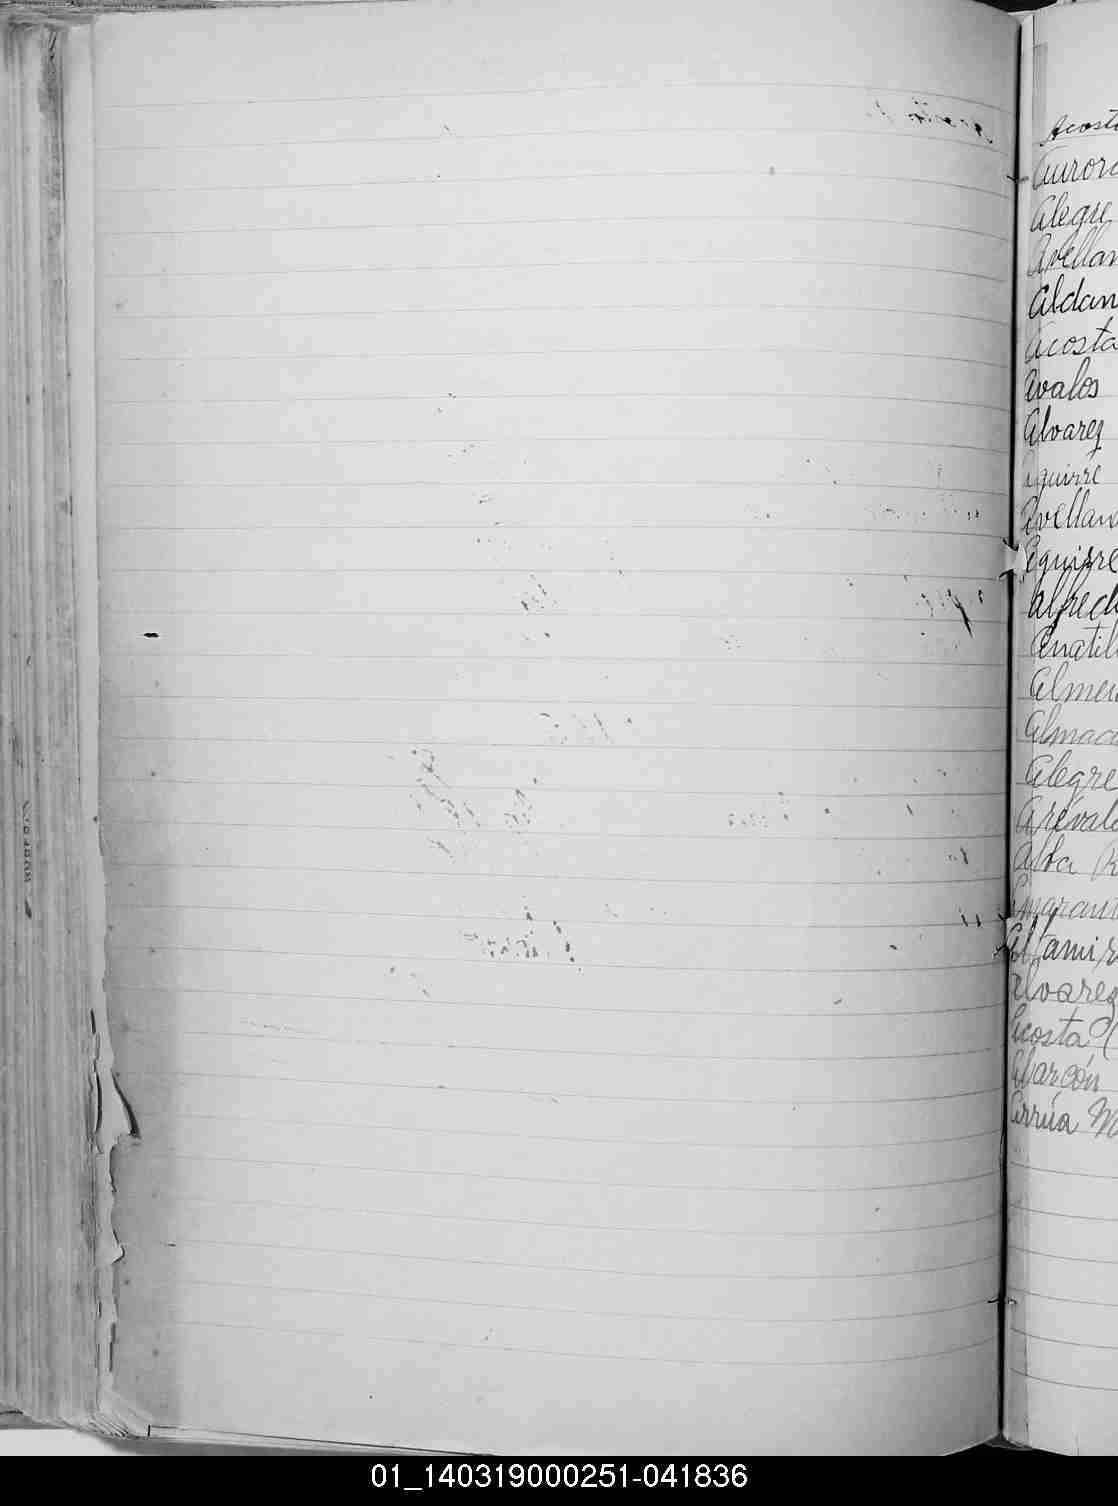 Acosta
Aurora
Alegre
Avellan
Aldan
Acosta
Avalos
Alvarez
Aguirre
Avellane
Aguirre
Alfredo
Anatil
Almei
Almac
Alegre
Arevalo
Alba R
Altamir
Alvarez
Acosta
Alarcón
Arrúa M
01_140319000251-041836